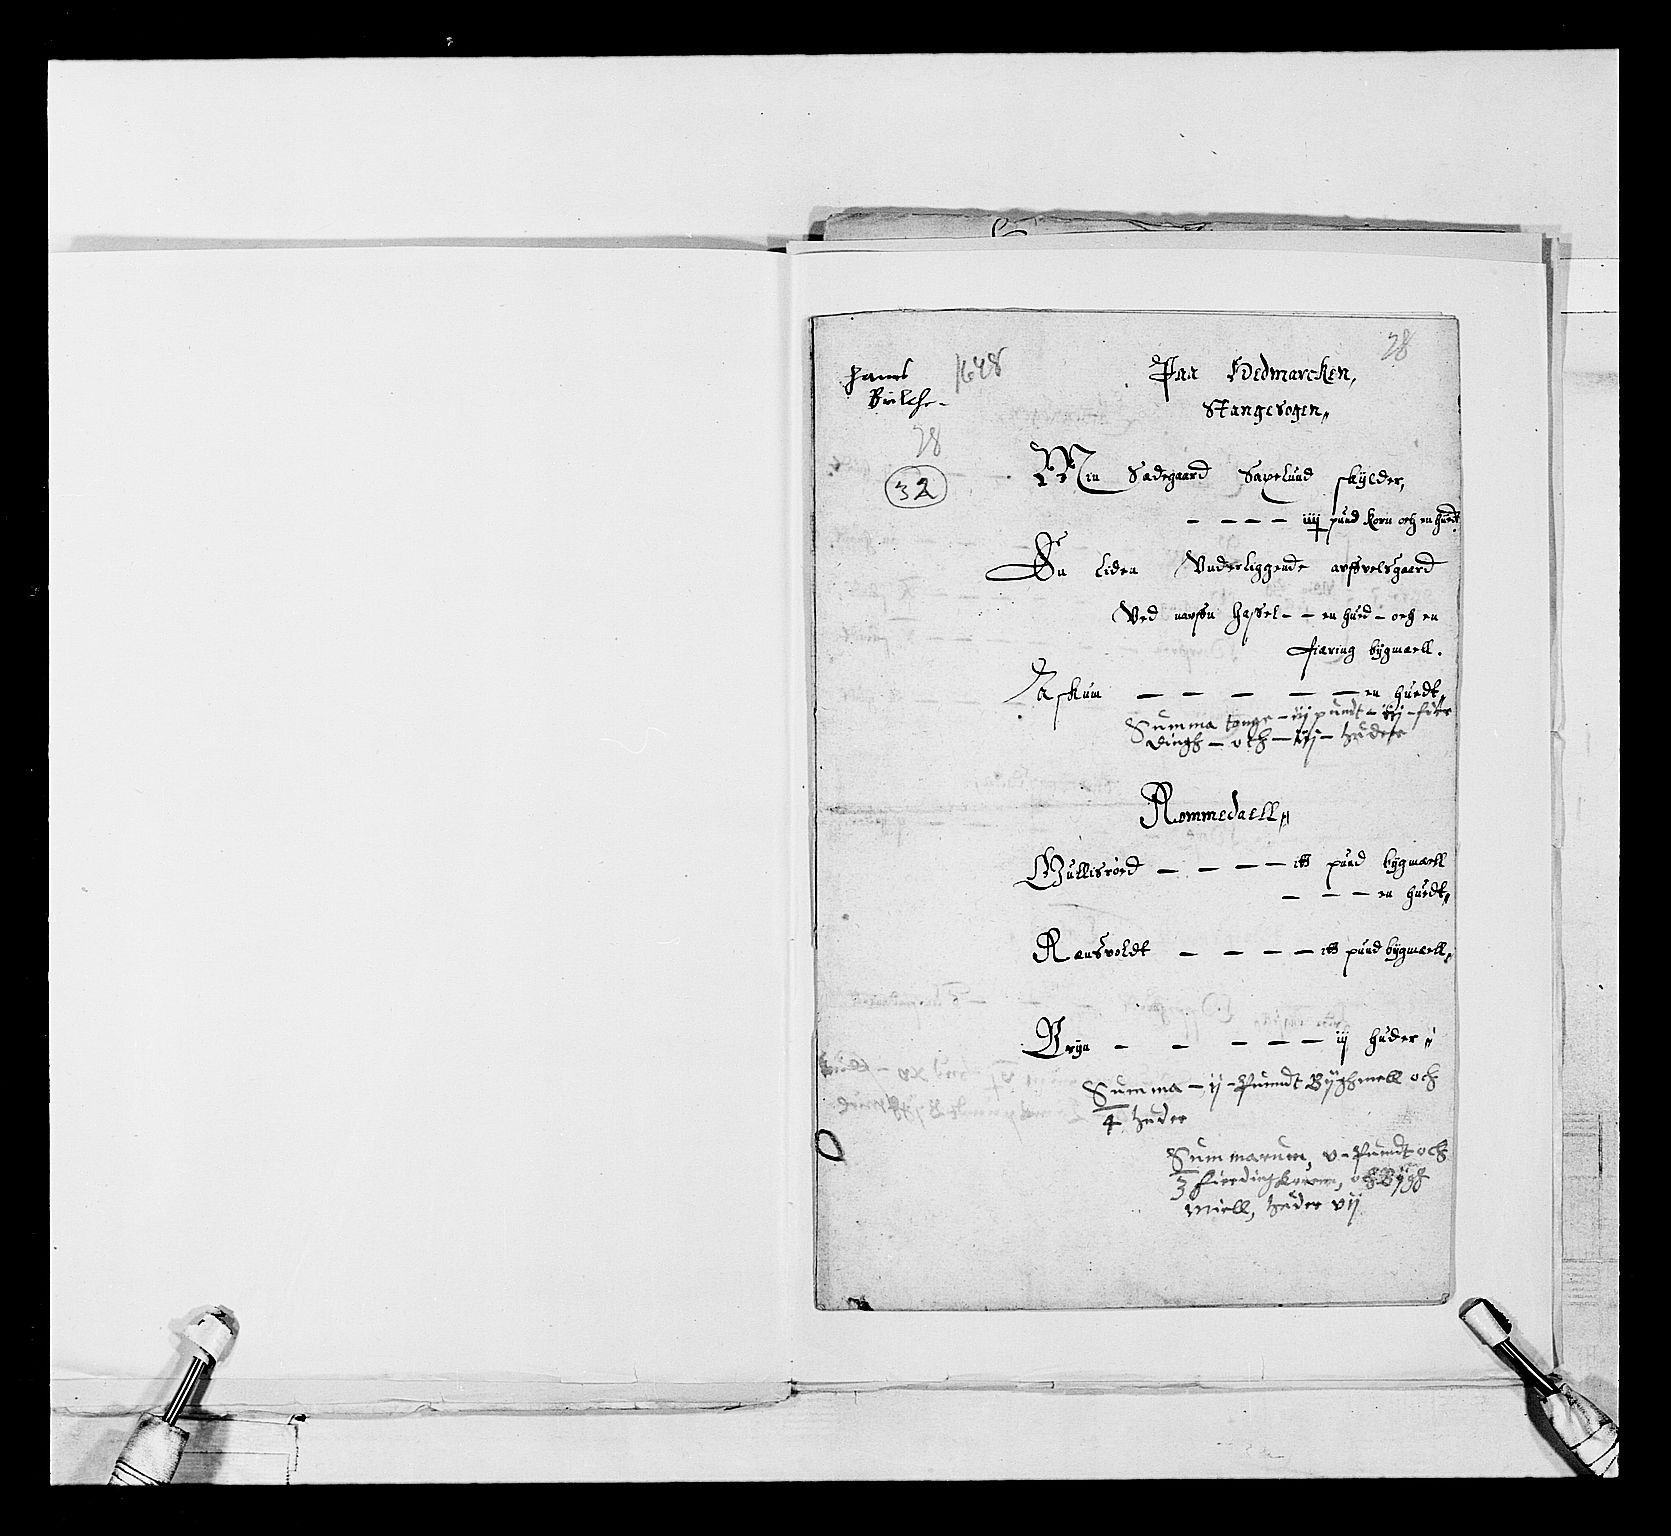 28
Hanns
Bielche
1648
28
32
Paa Hedmarcken,
Stangesogen,,
Min Sædegaard Saxelund skylder,
- - - - iiij pund korn och en huedt
En liden Underliggende affvelsgaard
Ved naffn Hassel - - en hued - och en
fiæring bygmaell.
Askum - - - - - en huedt,,
Summa tange - iij pundt - iij - fier
dingh - och - iij - huder
Rommedaell,,
Gullisröed - - - - itt pund bygmaell
- - - en huedt,,
Ransvoldt - - - - itt pund bygmaell,,
Bryn - - - - - iij huder,,
Summa - ij - Pundt Bÿghmell och
4 huder
Summarum, v - Pundt och
3 fierding Korrn, och Bÿgh
miell, huder vij